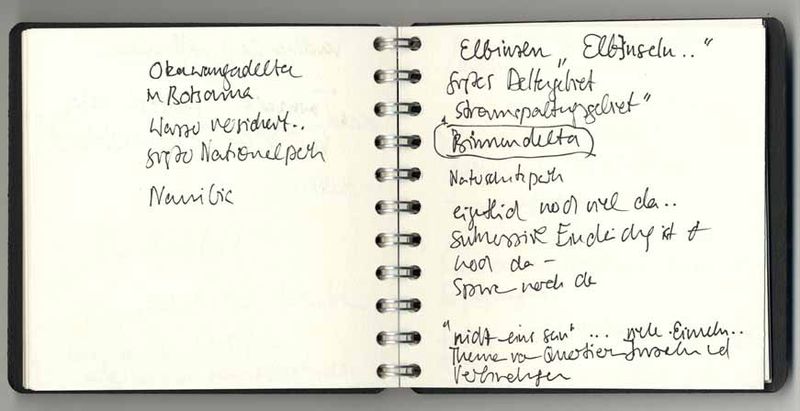 Okawangadelta
in Botsuana
Wasser versickert..
großer Nationalpark
Namibia
Elbinseln „ElbInseln.."
großes Deltagebiet
„Stromspaltungsgebiet"
Binnendelta
Naturschutzpark
eigentlich noch viel da..
sukzessive Eindeichung ist
noch da –
Spuren noch da
"nicht eins sein" ... viele Einzeln..
Thema von Quartier Inseln und
Verbindungen